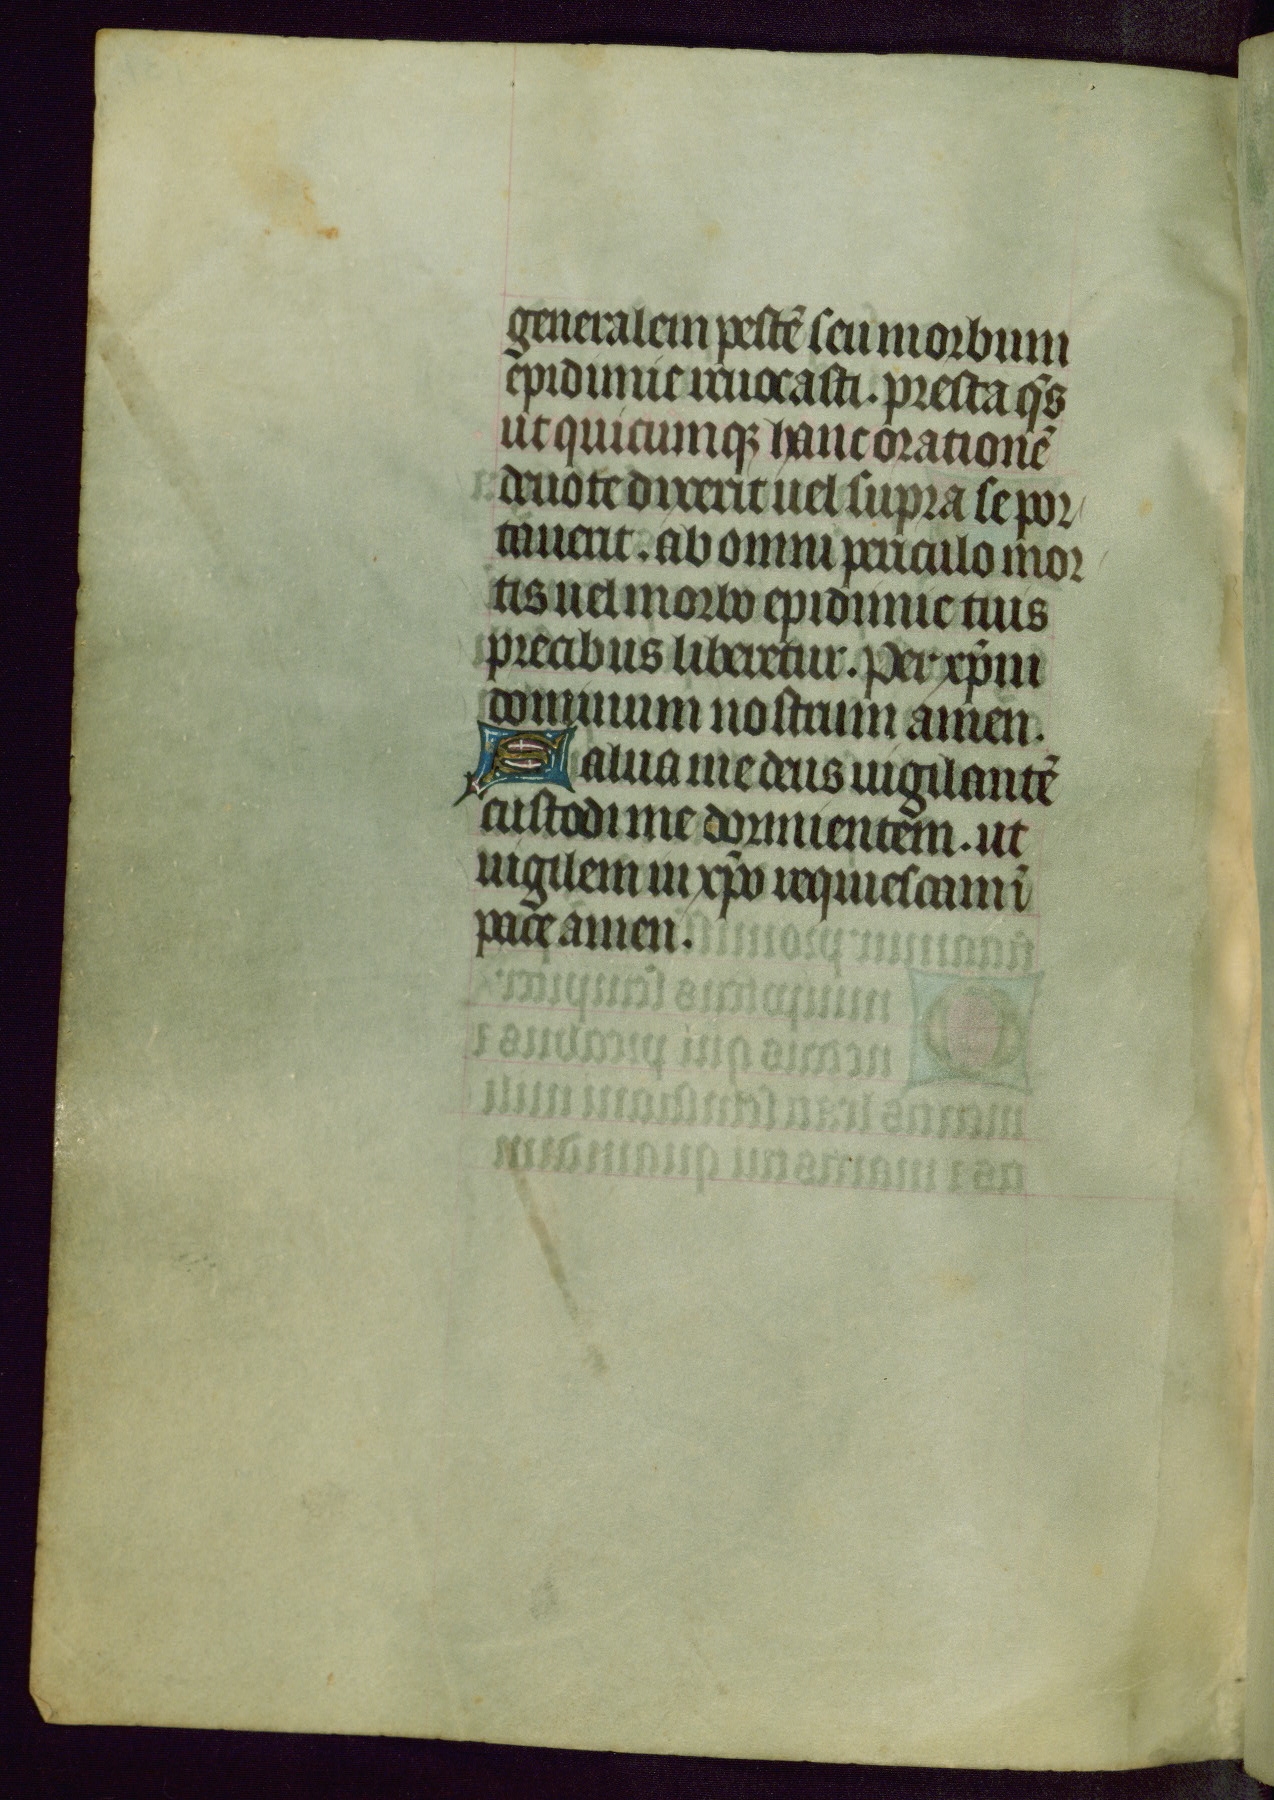 generalem pestē seu morbum
epidimie reuocasti. presta q̄s
ut quicumq; hanc orationē
deuote dixerit uel supra se por
tauerit. ab omni periculo mor
tis uel morbo epidimie tuis
precibus liberetur. Per xp̄m
dominum nostrum amen.
Salua me deus uigilantē
custodi me dormientem. ut
uigilem in xp̄o requiescam ī
pace amen.